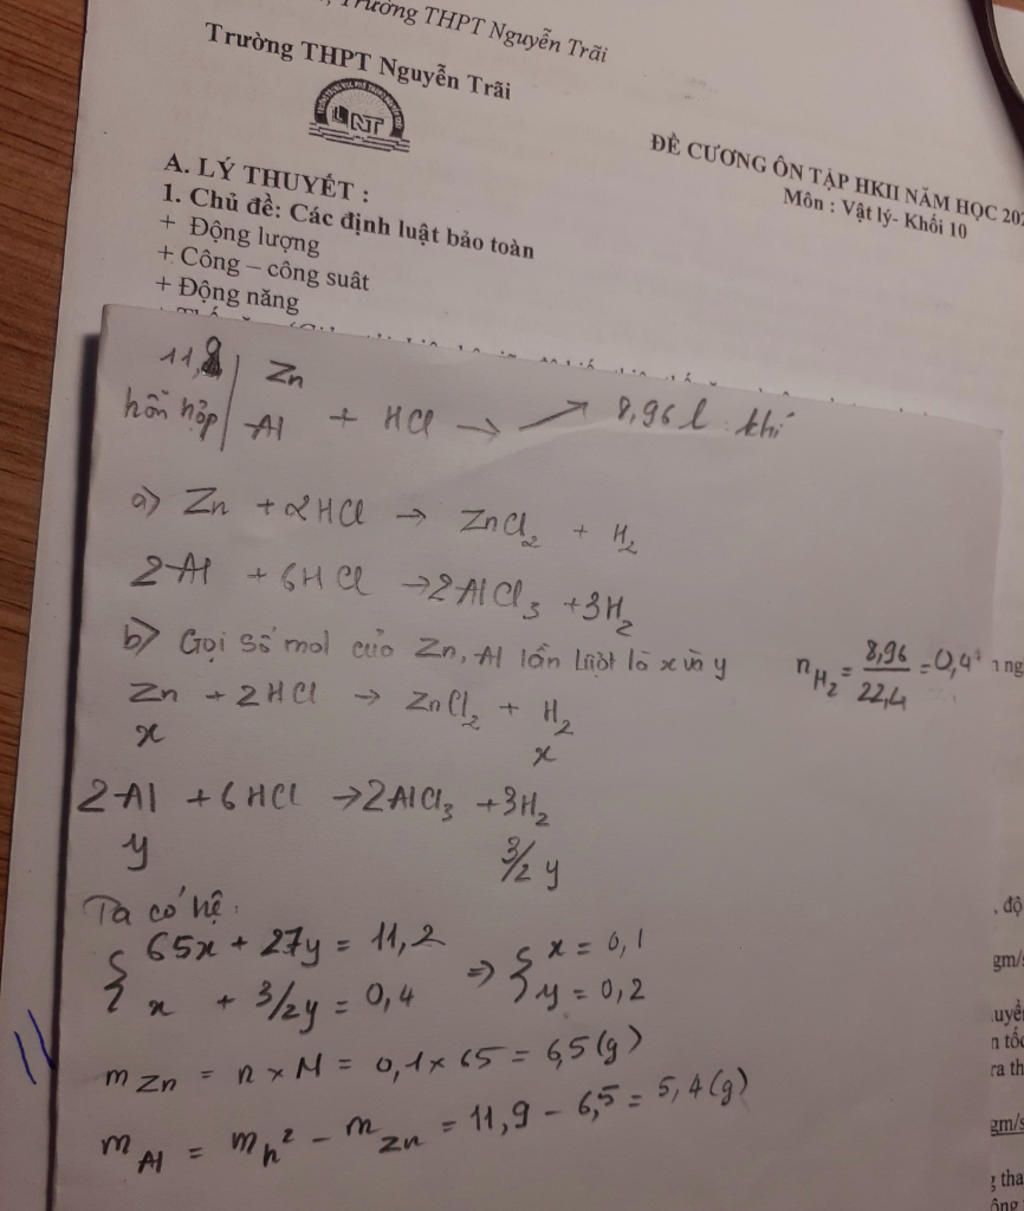 Trường THPT Nguyễn Trãi
Trường THPT Nguyễn Trãi
LNT
ĐỀ CƯƠNG ÔN TẬP HKII NĂM HỌC 202
Môn : Vật lý- Khối 10
A. LÝ THUYẾT :
1. Chủ đề: Các định luật bảo toàn
+ Động lượng
+ Công – công suât
+ Động năng
hỗn hợp
Zn
Al + HCl → ↗ 8,96 l khí
a) Zn + 2HCl → ZnCl₂ + H₂
2Al + 6HCl → 2AlCl₃ + 3H₂
b) Gọi số mol của Zn, Al lần lượt là x và y
n H₂ = 8,96 / 22,4 = 0,4
Zn + 2HCl → ZnCl₂ + H₂
x x
2Al + 6HCl → 2AlCl₃ + 3H₂
y 3/2 y
Ta có hệ:
{ 65x + 27y = 11,2 ⇒ { x = 0,1
x + 3/2y = 0,4 y = 0,2
m Zn = n × M = 0,1 × 65 = 6,5 (g)
m Al = m h² - m Zn = 11,9 - 6,5 = 5,4 (g)
, độ
gm/s
n tố
ra th
gm/s
g tha